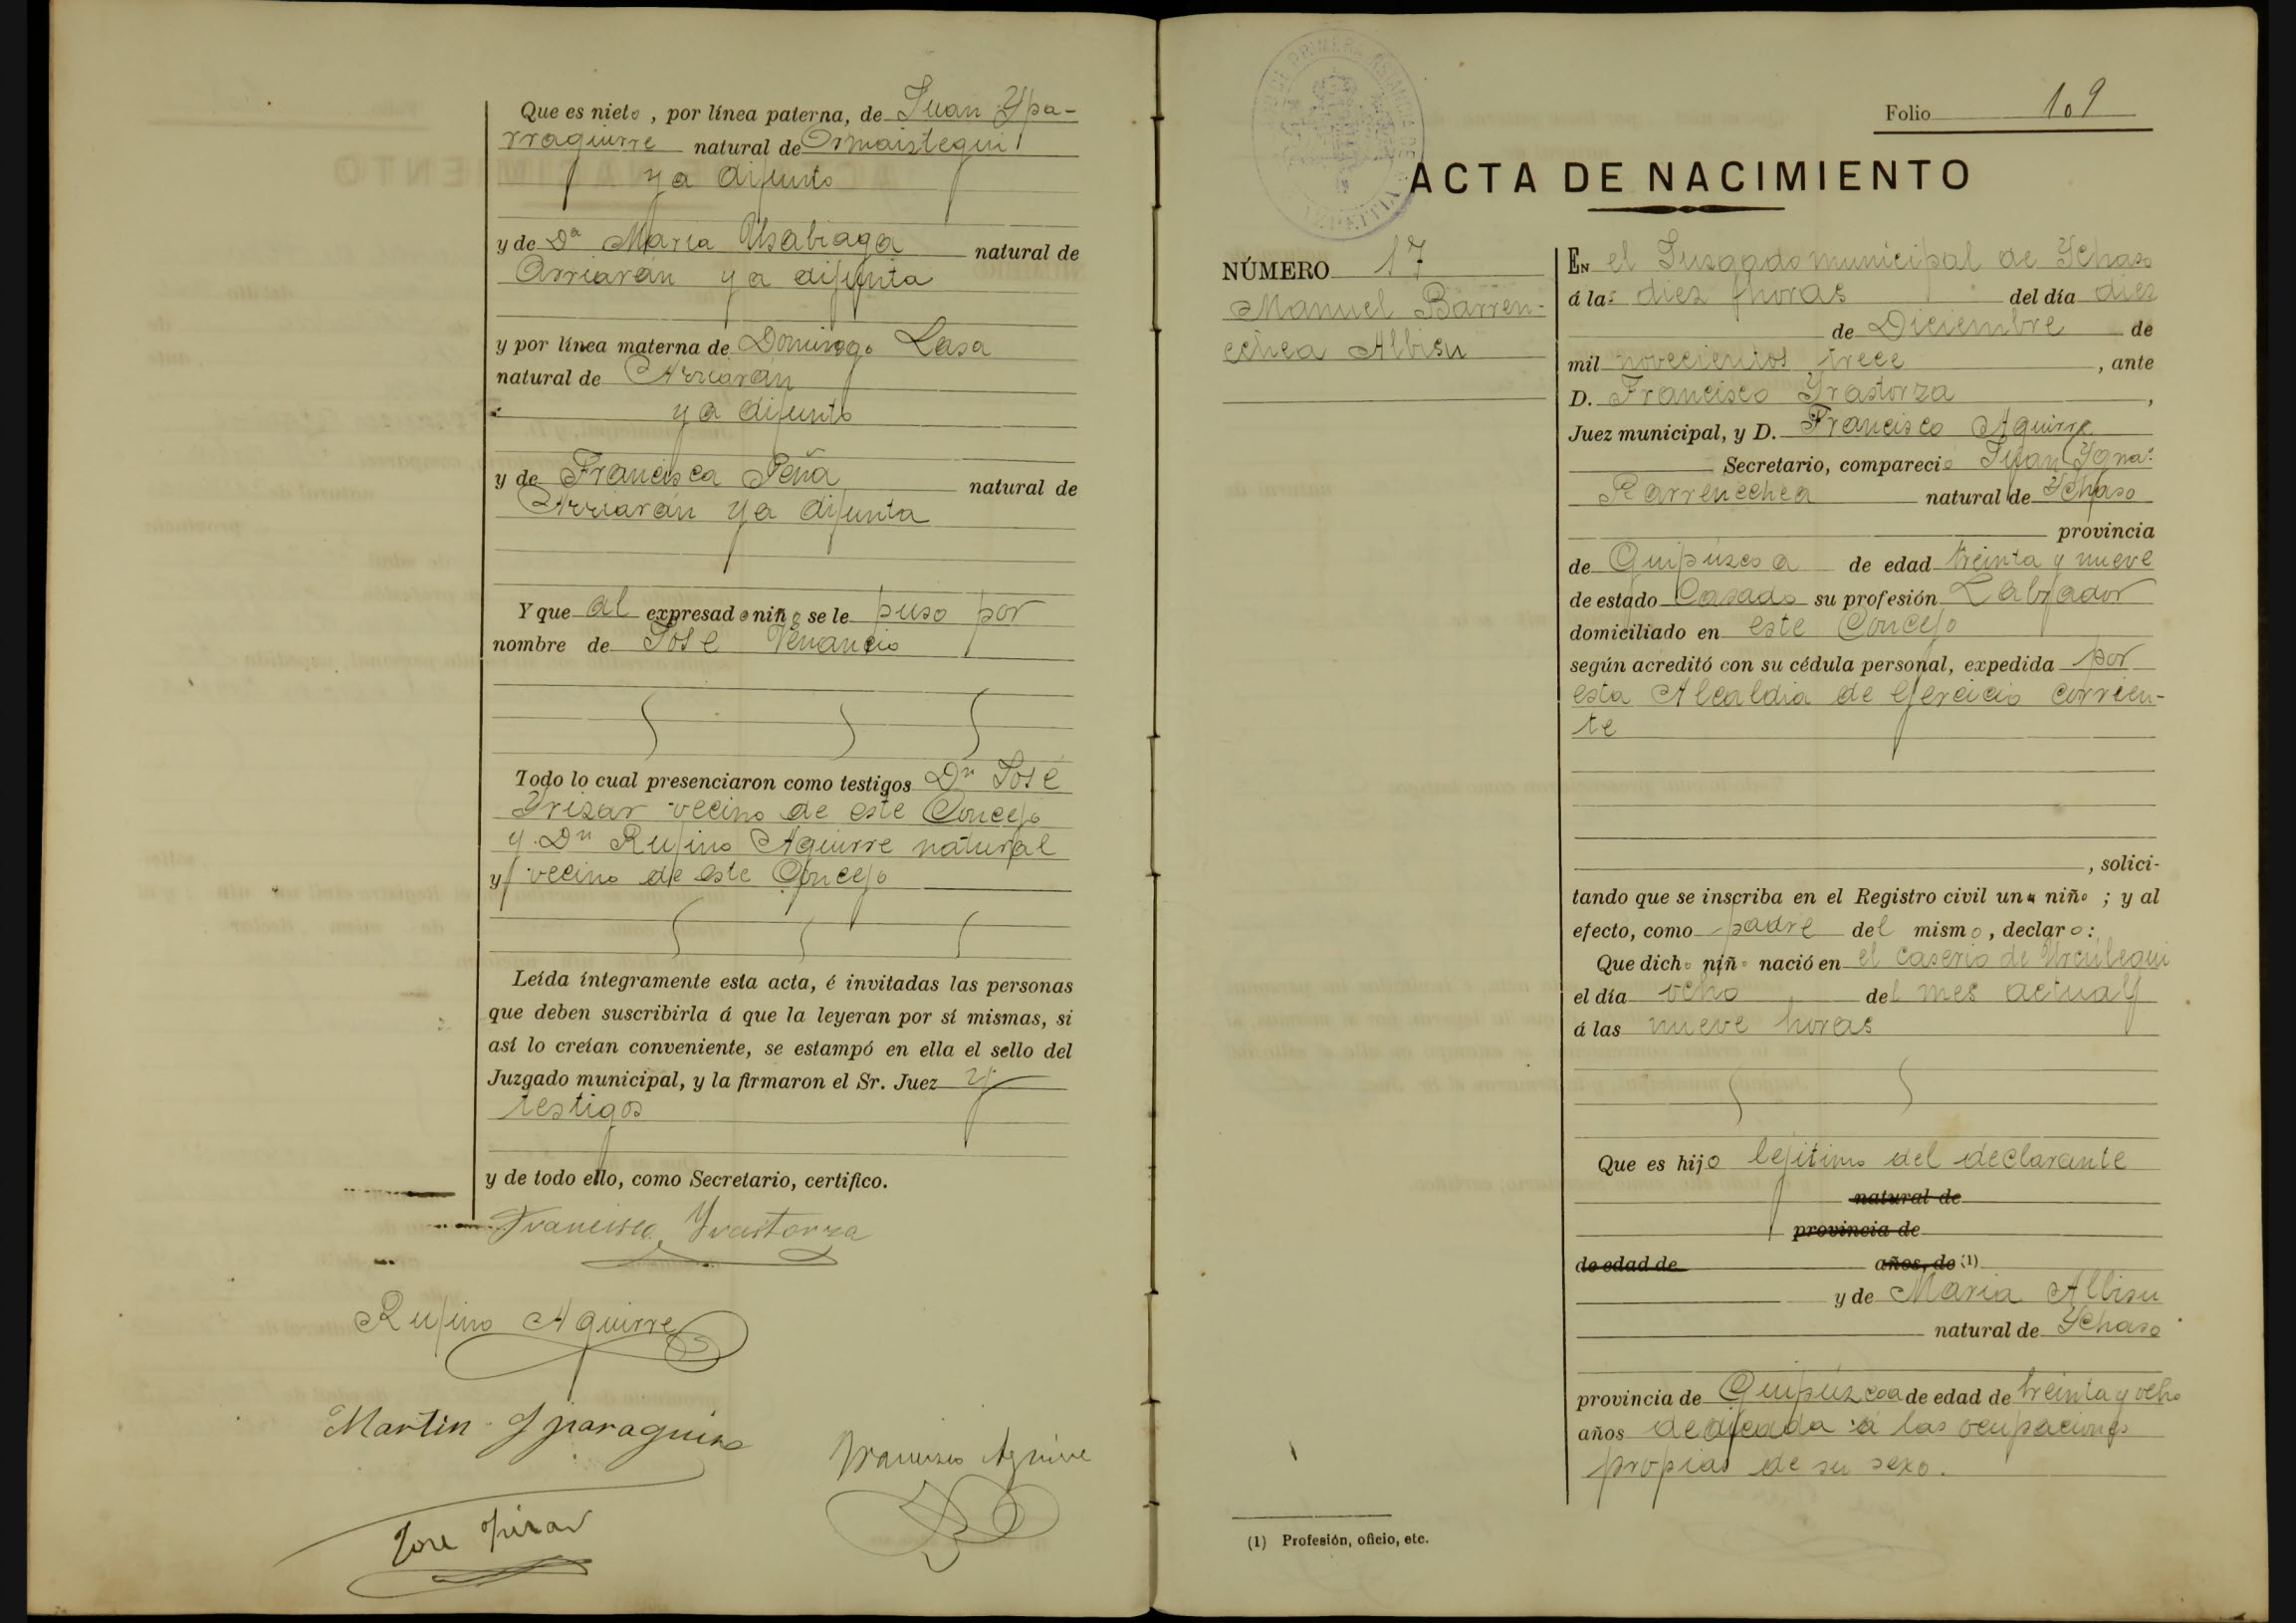 Que es nieto, por línea paterna, de Juan Ypa-
rraguirre natural de Ormaiztegui
ya difunto
y de Dª Maria Usabiaga natural de
Arriarán ya difunta
y por línea materna de Domingo Lasa
natural de Arriarán
ya difunto
y de Francisca Peña natural de
Arriarán ya difunta
Y que al expresado niño se le puso por
nombre de José Venancio
Todo lo cual presenciaron como testigos Dn José
Yrizar vecino de este Concejo
y Dn Rufino Aguirre natural
y vecino de este Concejo
Leída íntegramente esta acta, é invitadas las personas
que deben suscribirla á que la leyeran por sí mismas, si
así lo creían conveniente, se estampó en ella el sello del
Juzgado municipal, y la firmaron el Sr. Juez y
testigos
y de todo ello, como Secretario, certifico.
Francisco Yrastorza
Rufino Aguirre
Martin Yparaguirre
Francisco Aguirre
José Yrizar
Folio 109
ACTA DE NACIMIENTO
NÚMERO 17
Manuel Barren-
echea Albisu
EN el Juzgado municipal de Ychaso
á las diez horas del día diez
de Diciembre de
mil novecientos trece, ante
D. Francisco Yrastorza,
Juez municipal, y D. Francisco Aguirre
Secretario, compareció Juan Ygna:
Barrenechea natural de Ychaso
provincia
de Guipúzcoa de edad treinta y nueve
de estado Casado su profesión Labrador
domiciliado en este Concejo
según acreditó con su cédula personal, expedida por
esta Alcaldia de ejercicio corrien-
te
, solici-
tando que se inscriba en el Registro civil un niño; y al
efecto, como padre del mismo, declaro:
Que dicho niño nació en el caserio de Urcúlegui
el día ocho del mes actual
á las nueve horas
Que es hijo lejitimo del declarante
natural de
provincia de
de edad de años, de (1)
y de Maria Albisu
natural de Ychaso
provincia de Guipúzcoa de edad de treinta y ocho
años dedicada á las ocupaciones
propias de su sexo.
(1) Profesión, oficio, etc.